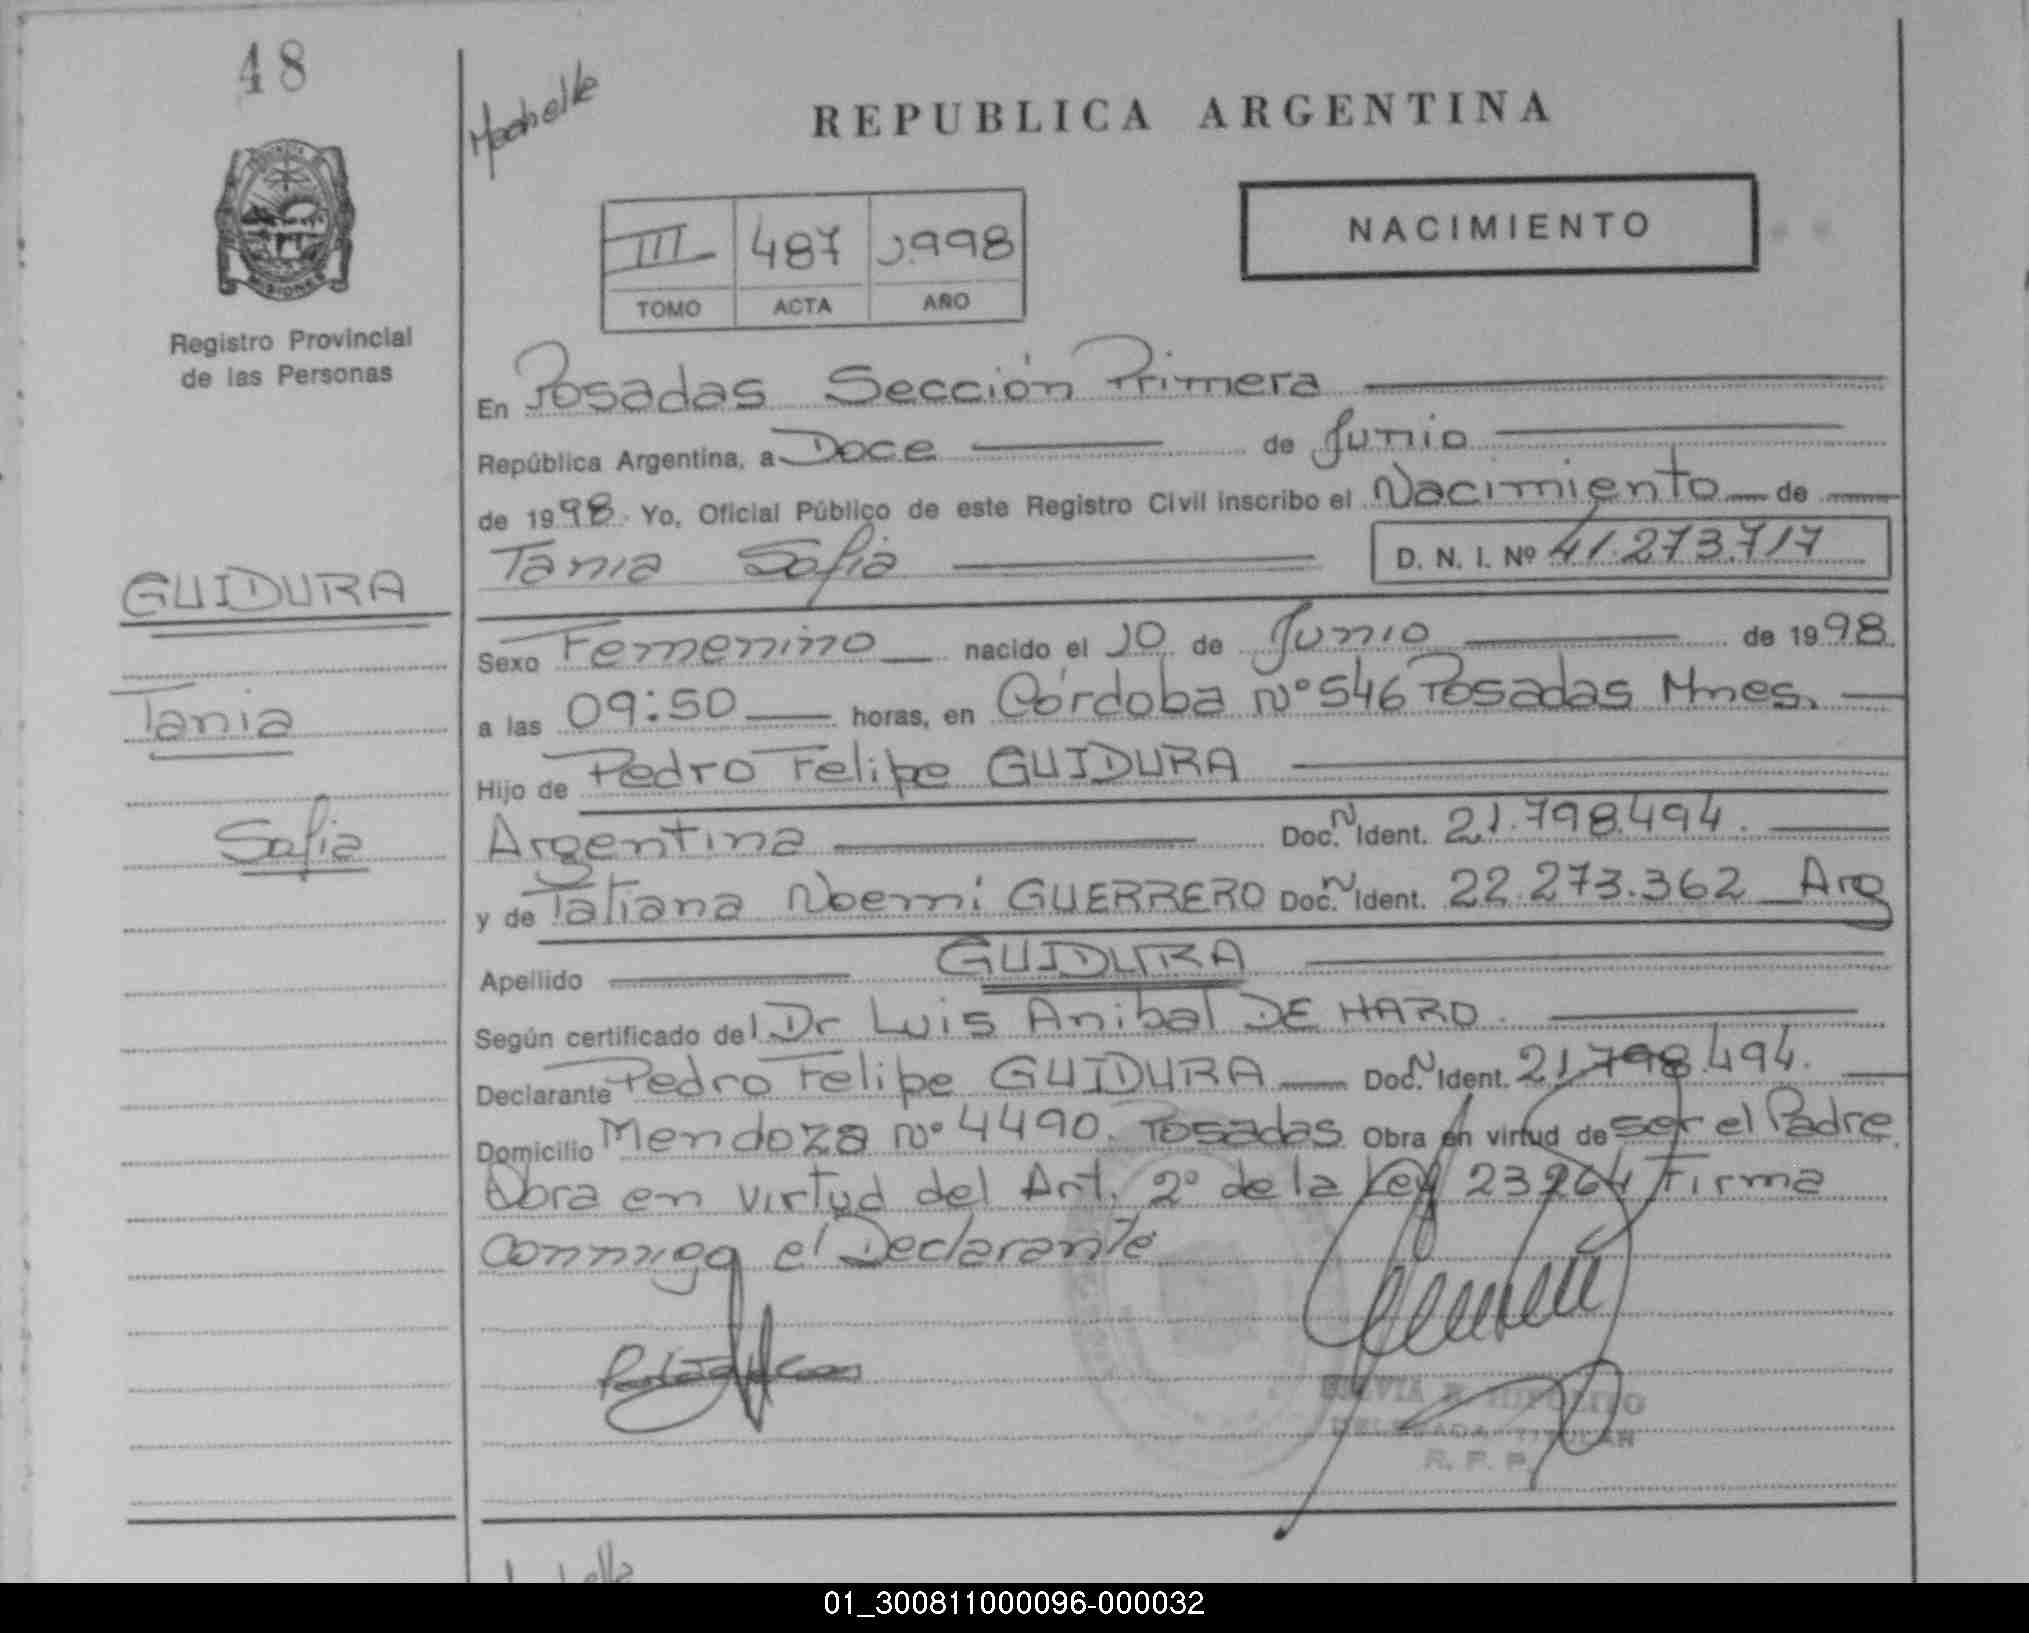 48
Registro Provincial
de las Personas
MISIONES
REPUBLICA ARGENTINA
NACIMIENTO
III 487 1.998
TOMO ACTA AÑO
En Posadas Sección Primera
República Argentina, a Doce de Junio
de 1998 Yo, Oficial Público de este Registro Civil inscribo el Nacimiento de
Tania Sofia D. N. I. Nº 41.273.717
GUIDURA
Tania
Sofia
Sexo Femenino nacido el 10 de Junio de 1998.
a las 09:50 horas, en Córdoba Nº 546 Posadas Mnes.
Hijo de Pedro Felipe GUIDURA
Argentina Doc. N Ident. 21.798.494.
y de Tatiana Noemi GUERRERO Doc. N Ident. 22.273.362 Arg
Apellido GUIDURA
Según certificado del Dr Luis Anibal DE HARO.
Declarante Pedro Felipe GUIDURA Doc. N Ident. 21.798.494.
Domicilio Mendoza Nº 4490. Posadas Obra en virtud de ser el Padre
Obra en virtud del Art. 2º de la Ley 23264 Firma
conmigo el Declarante
HIPOLITO
DELEGADA TITULAR
R. P. P.
01_300811000096-000032